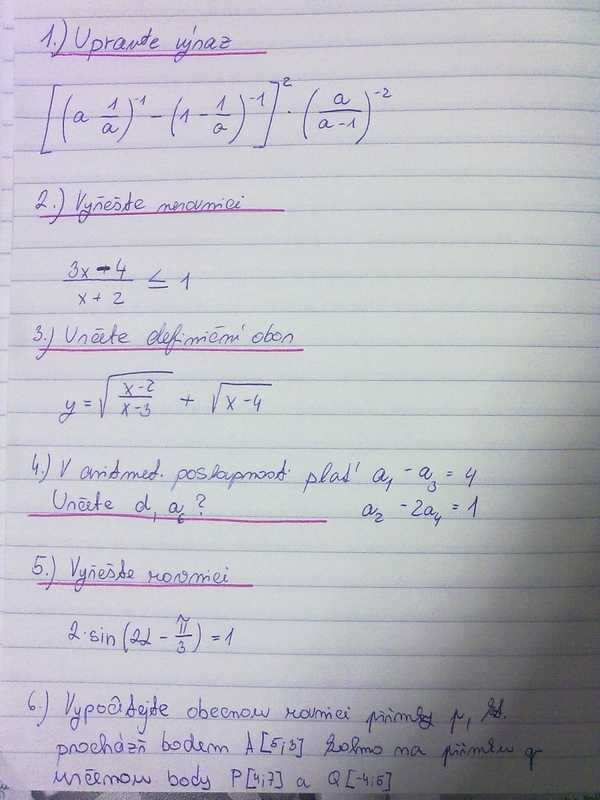 1.) Upravte výraz
[(a 1/a)^-1 - (1 - 1/a)^-1]^2 · (a/(a-1))^-2
2.) Vyřešte nerovnici
(3x - 4)/(x + 2) ≤ 1
3.) Určete definiční obor
y = √((x-2)/(x-3)) + √(x-4)
4.) V aritmet. poslupnosti platí a₁ - a₃ = 4
Určete d, a₆? a₂ - 2a₄ = 1
5.) Vyřešte rovnici
2·sin(2α - π/3) = 1
6.) Vypočítejte obecnou rovnici přímky p,
prochází bodem A[5;3] kolmo na přímku q
určenou body P[4;7] a Q[-4;5]